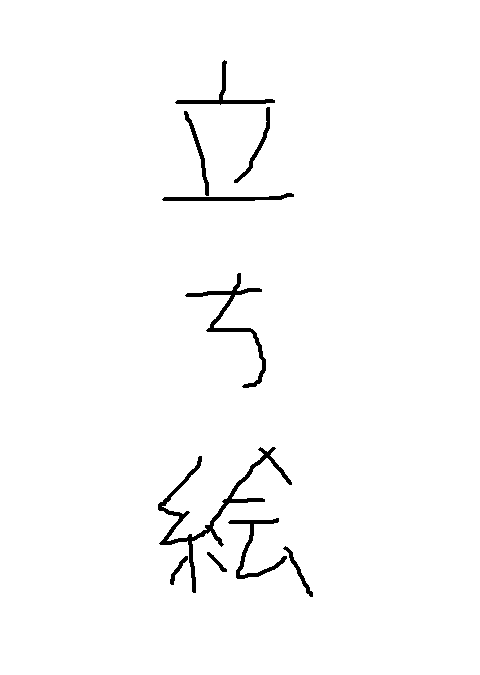 立ち絵